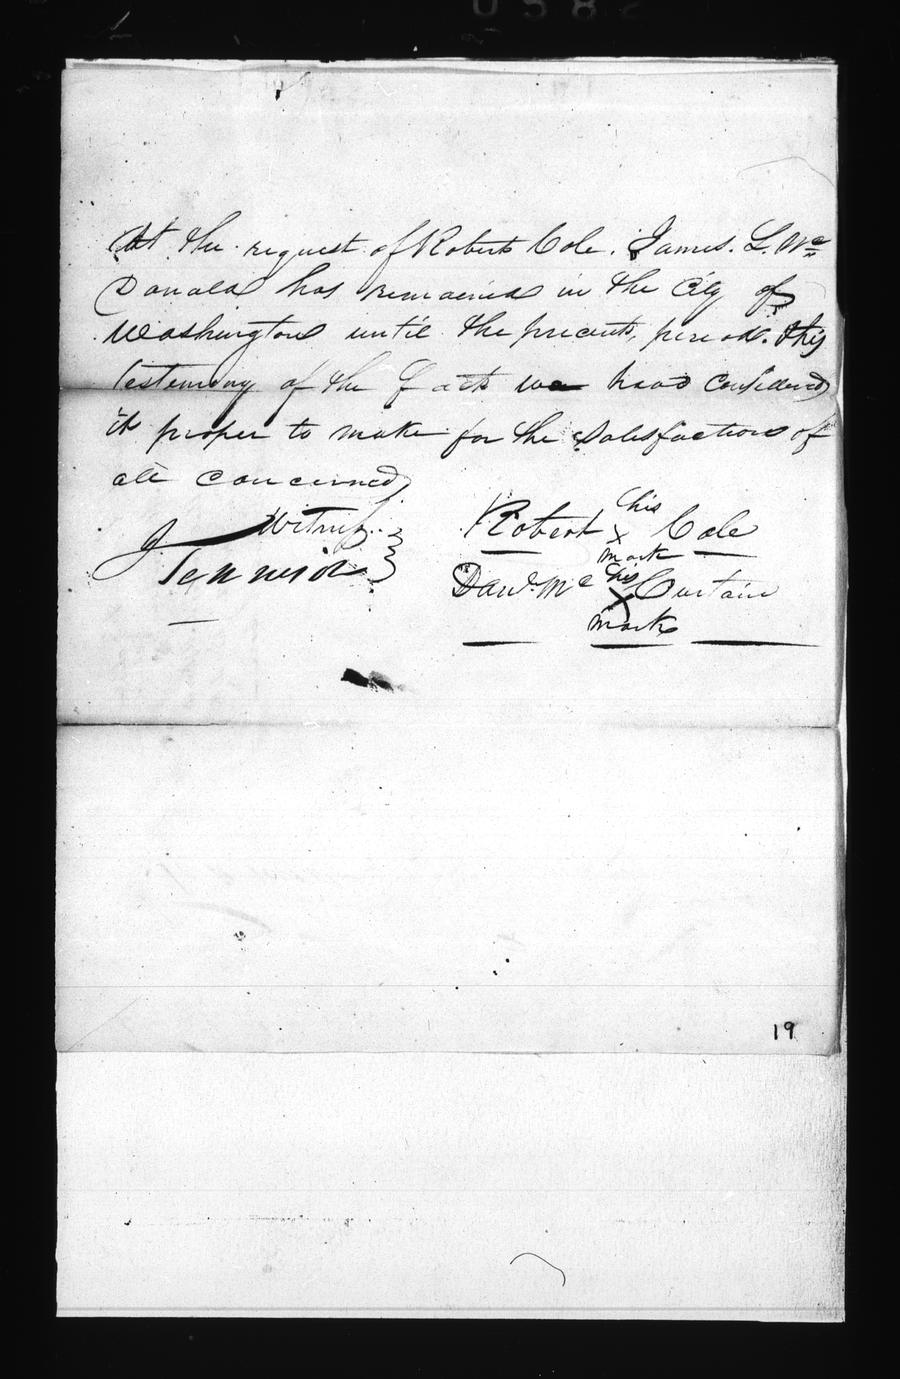 At the request of Robert Cole. James. L. Mc
Donald has remained in the City of
Washington until the present, period. this
testimony of the facts we have considered
it proper to make for the Satisfaction of
all concerned
Witness
J Tennison
Robert his x mark Cole
Danl. Mc his x mark Curtain
19